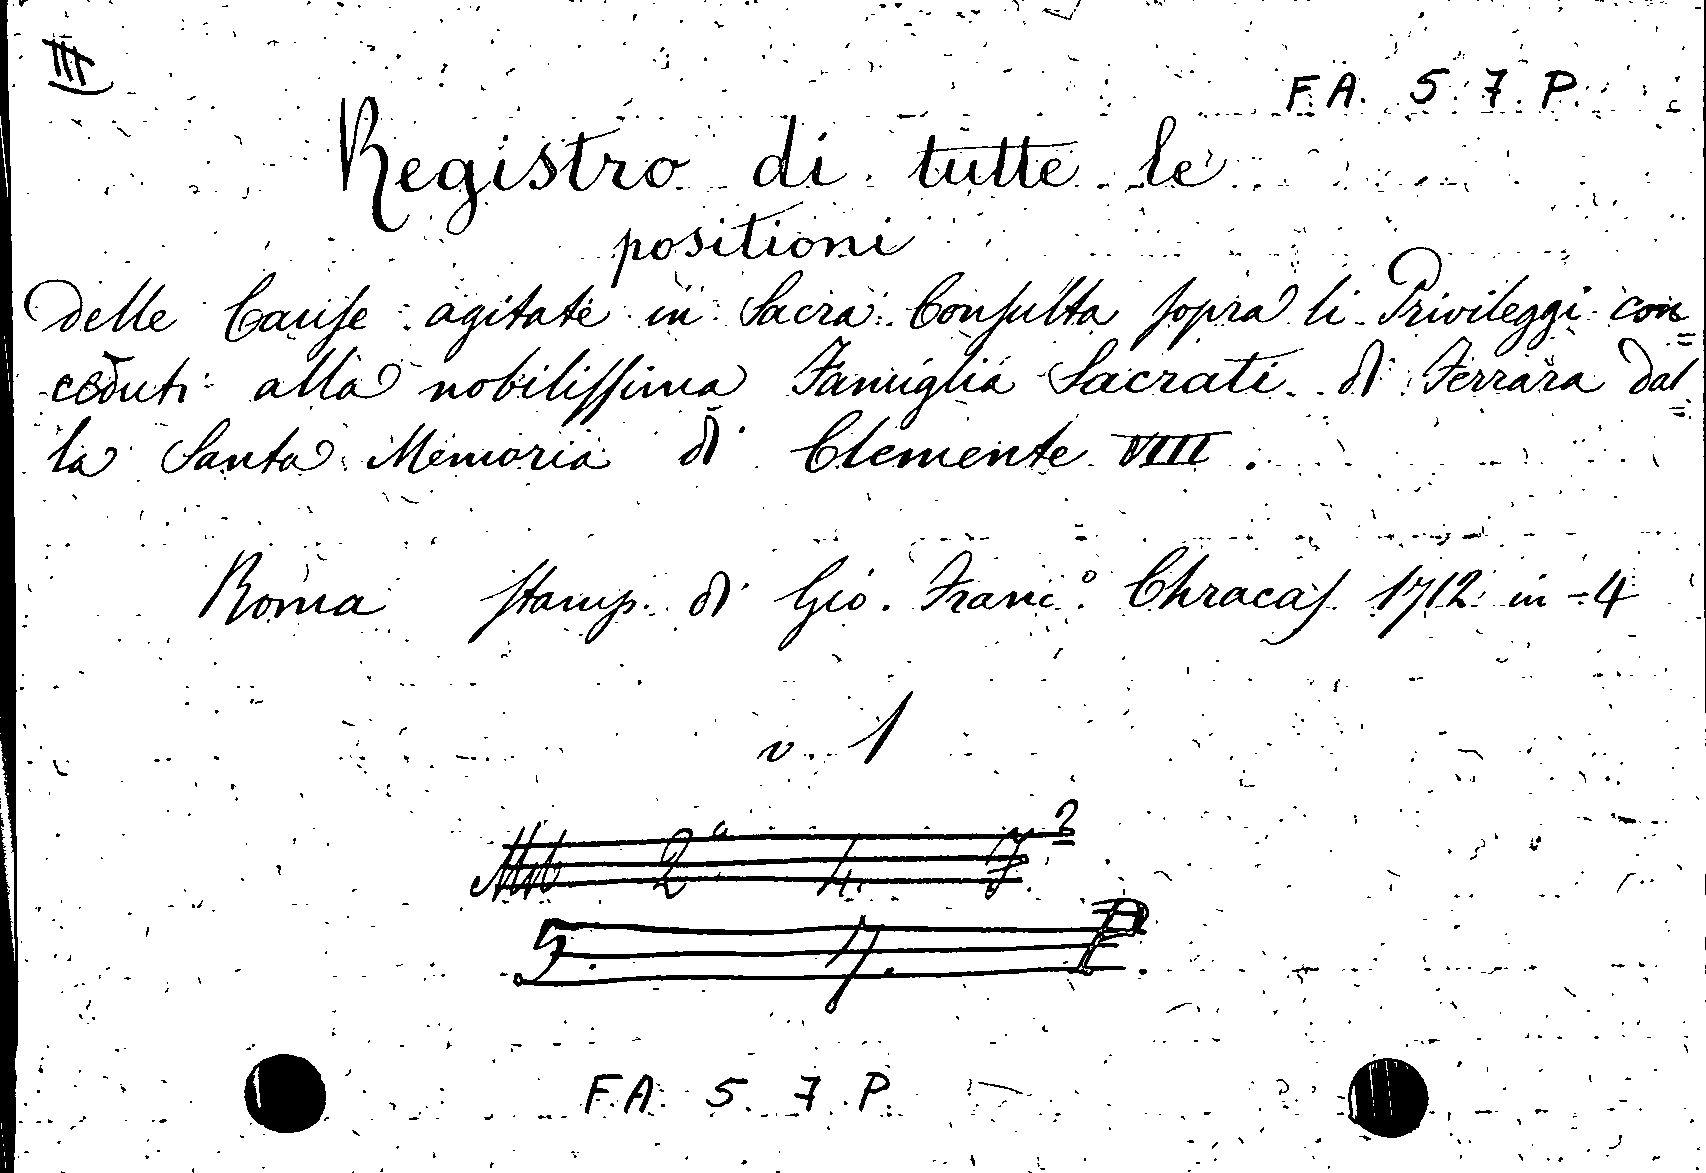 III
F.A. 5. 7. P.
Registro di tutte le
positioni
delle Cause agitate in Sacra Consulta sopra li Privileggi con=
ceduti alla nobilissima Famiglia Sacrati di Ferrara dal=
la Santa Memoria di Clemente VIII.
Roma stamp. di Gio. Franc.º Chracas 1712 in-4
v. 1
2ª. 4. 7.²
5. 7. P.
F.A. 5. 7. P.